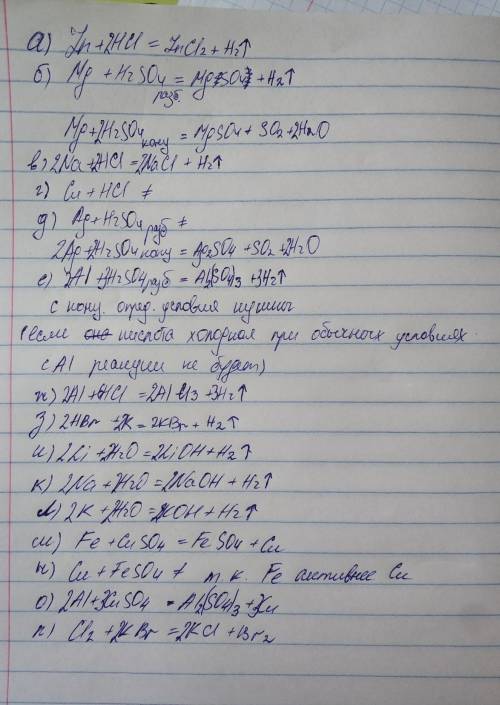 а) Zn+2HCl = ZnCl2 + H2↑
б) Mg + H2SO4 разб. = MgSO4 + H2↑
Mg+2H2SO4 конц = MgSO4 + SO2 + 2H2O
в) 2Na+2HCl = 2NaCl + H2↑
г) Cu + HCl ≠
д) Ag+H2SO4 разб ≠
2Ag+2H2SO4 конц = Ag2SO4 + SO2 + 2H2O
е) 2Al + 3H2SO4 разб = Al2(SO4)3 + 3H2↑
с конц. опред. условия нужны
(если она кислота холодная при обычных условиях
с Al реакции не будет)
ж) 2Al+6HCl = 2AlCl3 + 3H2↑
з) 2HBr + 2K = 2KBr + H2↑
и) 2Li + 2H2O = 2LiOH + H2↑
к) 2Na + 2H2O = 2NaOH + H2↑
л) 2K + 2H2O = 2KOH + H2↑
м) Fe + CuSO4 = FeSO4 + Cu
н) Cu + FeSO4 ≠ т.к. Fe активнее Cu
о) 2Al+3CuSO4 = Al2(SO4)3 + 3Cu
п) Cl2 + 2KBr = 2KCl + Br2